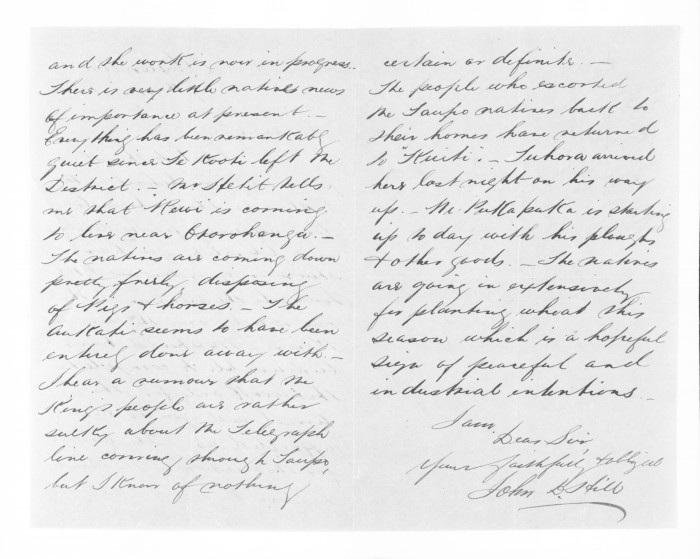 and the work is now in progress.
There is very little natives news
of importance at present. -
Everything has been remarkably
quiet since Te Kooti left the
District. - Mr Hetit tells
me that Rewi is coming
to live near Otorohanga. -
The natives are coming down
pretty freely, disposing
of Pigs & horses. - The
Aukati seems to have been
entirely done away with. -
I hear a rumour that the
Kings people are rather
sulky about the Telegraph
line coming through Taupo,
but I know of nothing
certain or definite. -
The people who escorted
the Taupo natives back to
their homes have returned
to "Kuiti". - Tuhora arrived
here last night on his way
up. - Te Pukapuka is starting
up to day with his ploughs
& other goods. - The natives
are going in extensively
for planting wheat this
season which is a hopeful
sign of peaceful and
industrial intentions. -
I am
Dear Sir
Your faithfully & obliged
John D. Hill